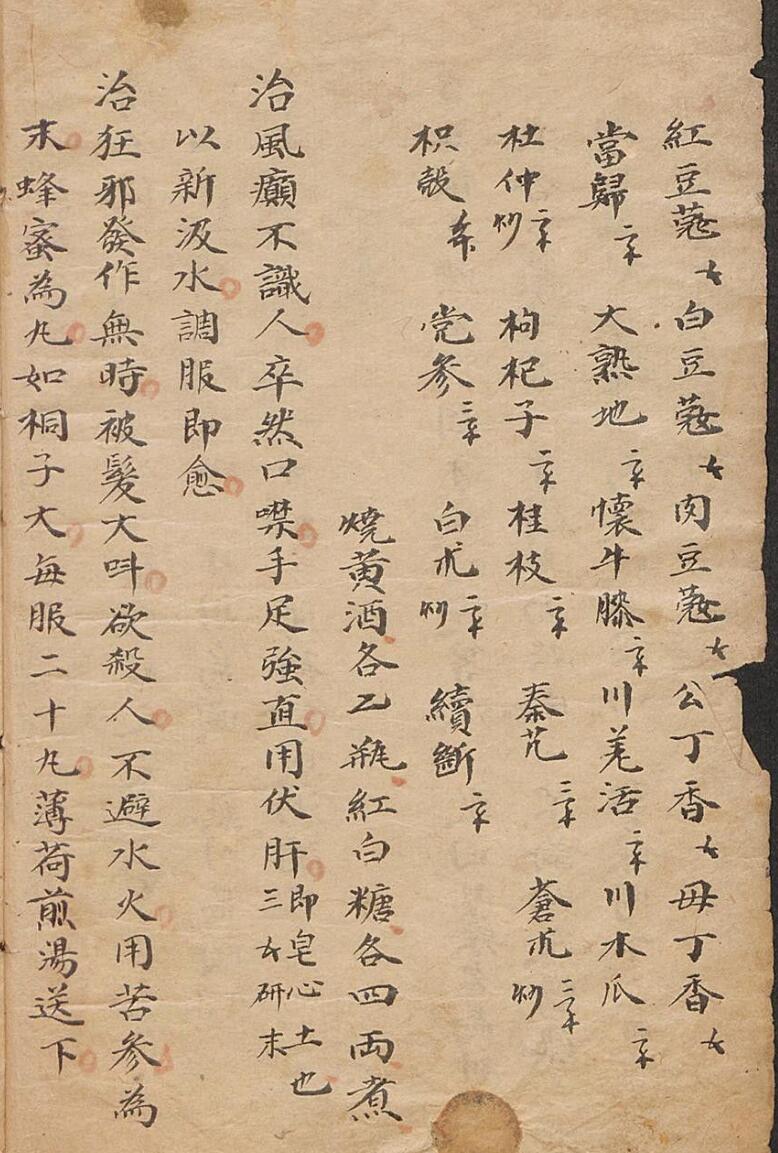 紅豆蔻 白豆蔻 肉豆蔻 公丁香 毋丁香
當歸 大熟地 懷牛膝 川羌活 川木瓜
杜仲炒 枸杞子 桂枝 秦艽 蒼朮炒
枳殻 党参 白朮炒 續斷
燒黄酒各乙瓶紅白糖各四両煮
治風癲不識人卒然口噤手足強直用伏肝即皂心土也三研末
以新汲水調服即愈
治狂邪發作無時被髮大呌欲殺人不避水火用苦参為
末蜂蜜為丸如桐子大每服二十丸薄荷煎湯送下